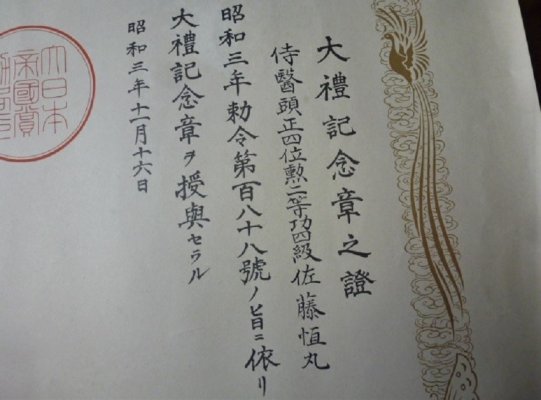 大禮記念章之證
侍醫頭正四位勲二等功四級佐藤恒丸
昭和三年勅令第百八十八號ノ旨ニ依リ
大禮記念章ヲ授與セラル
昭和三年十一月十六日
大日本
帝國賞